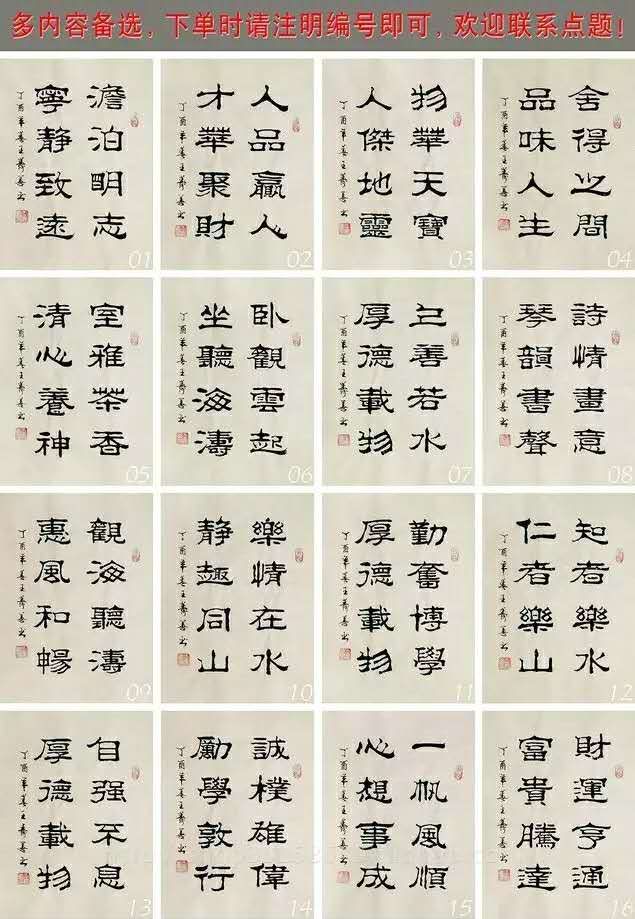 多内容备选，下单时请注明编号即可，欢迎联系点题！
澹泊明志
寧静致遠
丁酉年
01
人品贏人
才華聚財
丁酉年
02
物華天寶
人傑地靈
丁酉年
03
舍得之間
品味人生
丁酉年
04
室雅茶香
清心養神
丁酉年
05
卧觀雲起
坐聽海濤
丁酉年
06
上善若水
厚德載物
丁酉年
07
詩情畫意
琴韻書聲
丁酉年
08
觀海聽濤
惠風和暢
丁酉年
09
樂情在水
静趣同山
丁酉年
10
勤奮博學
厚德載物
丁酉年
11
知者樂水
仁者樂山
丁酉年
12
自强不息
厚德載物
丁酉年
13
誠樸雄偉
勵學敦行
丁酉年
14
一帆風順
心想事成
丁酉年
15
財運亨通
富貴騰達
丁酉年
16